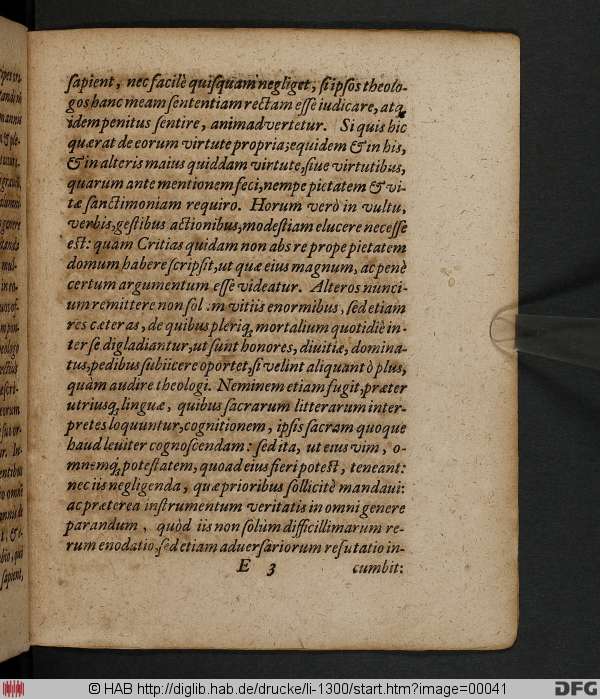 sapient, nec facilè quisquam negliget, si ipsos theolo-
gos hanc meam sententiam rectam esse iudicare, atq;
idem penitus sentire, animadvertetur. Si quis hic
quærat de eorum virtute propria; equidem & in his,
& in alteris maius quiddam virtute, siue virtutibus,
quarum ante mentionem feci, nempe pietatem & vi-
tæ sanctimoniam requiro. Horum verò in vultu,
verbis, gestibus actionibus, modestiam elucere necesse
est: quam Critias quidam non abs re prope pietatem
domum habere scripsit, ut quæ eius magnum, ac penè
certum argumentum esse videatur. Alteros nunci-
um remittere non sol m vitiis enormibus, sed etiam
res cæteras, de quibus pleriq; mortalium quotidiè in-
ter se digladiantur, ut sunt honores, diuitiæ, domina-
tus, pedibus subiicere oportet, si velint aliquantò plus,
quàm audire theologi. Neminem etiam fugit, præter
utriusq; linguæ, quibus sacrarum litterarum inter-
pretes loquuntur, cognitionem, ipsis sacram quoque
haud leuiter cognoscendam: sed ita, ut eius vim, o-
mnemq; potestatem, quoad eius fieri potest, teneant:
nec iis negligenda, quæ prioribus sollicitè mandaui:
ac præterea instrumentum veritatis in omni genere
parandum, quòd iis non solùm difficillimarum re-
rum enodatio, sed etiam aduersariorum refutatio in-
E 3 cumbit:
sapient,
© HAB http://diglib.hab.de/drucke/li-1300/start.htm?image=00041
DFG